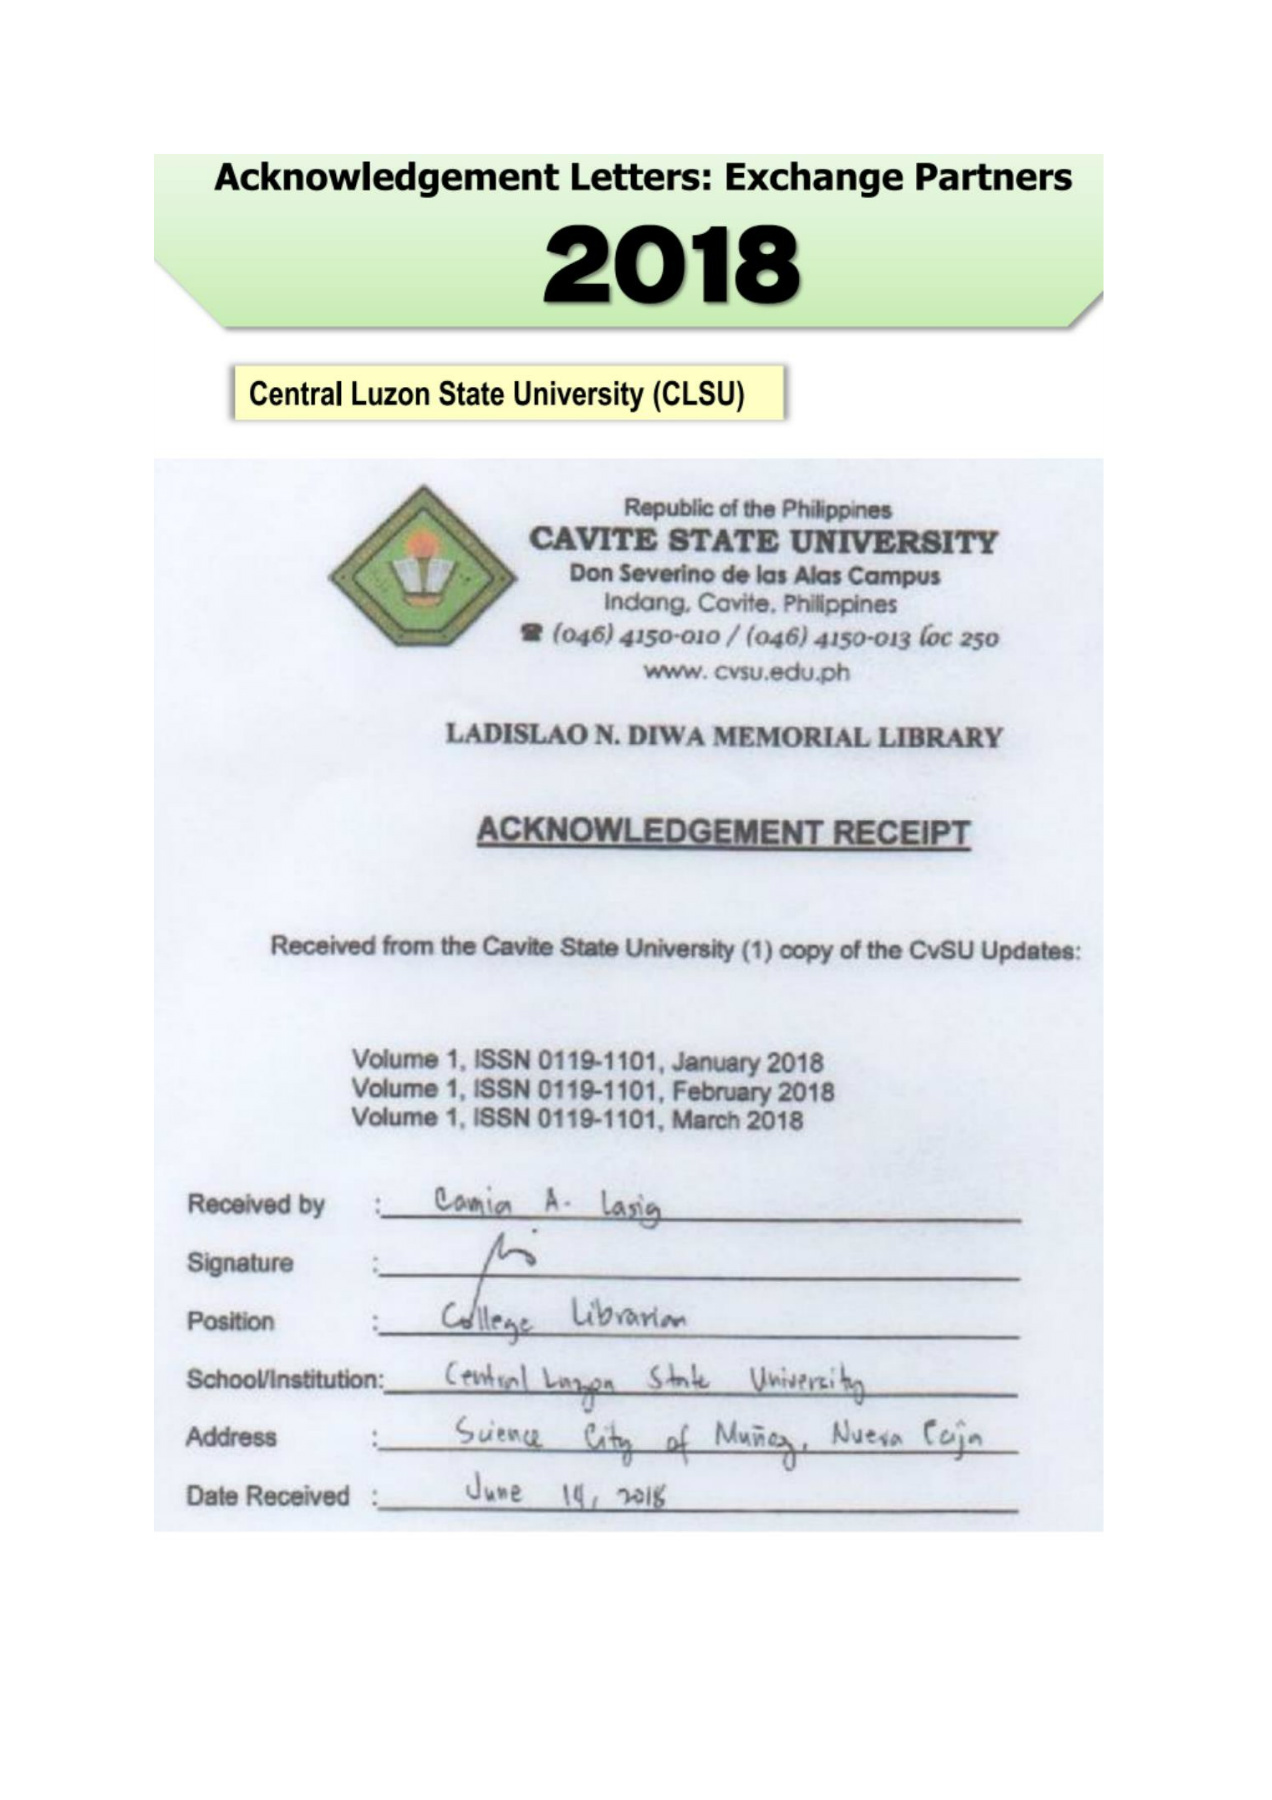 Acknowledgement Letters: Exchange Partners
2018
Central Luzon State University (CLSU)
Republic of the Philippines
CAVITE STATE UNIVERSITY
Don Severino de las Alas Campus
Indang, Cavite, Philippines
☎ (046) 4150-010 / (046) 4150-013 loc 250
www. cvsu.edu.ph
LADISLAO N. DIWA MEMORIAL LIBRARY
ACKNOWLEDGEMENT RECEIPT
Received from the Cavite State University (1) copy of the CvSU Updates:
Volume 1, ISSN 0119-1101, January 2018
Volume 1, ISSN 0119-1101, February 2018
Volume 1, ISSN 0119-1101, March 2018
Received by : Camia A. Lasig
Signature :
Position : College Librarian
School/Institution: Central Luzon State University
Address : Science City of Muñoz, Nueva Ecija
Date Received : June 14, 2018